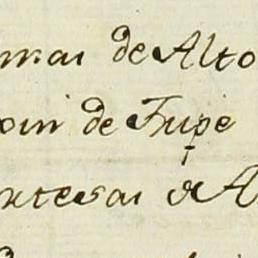 mai de Alto
oin de Fripe
rtesai & A